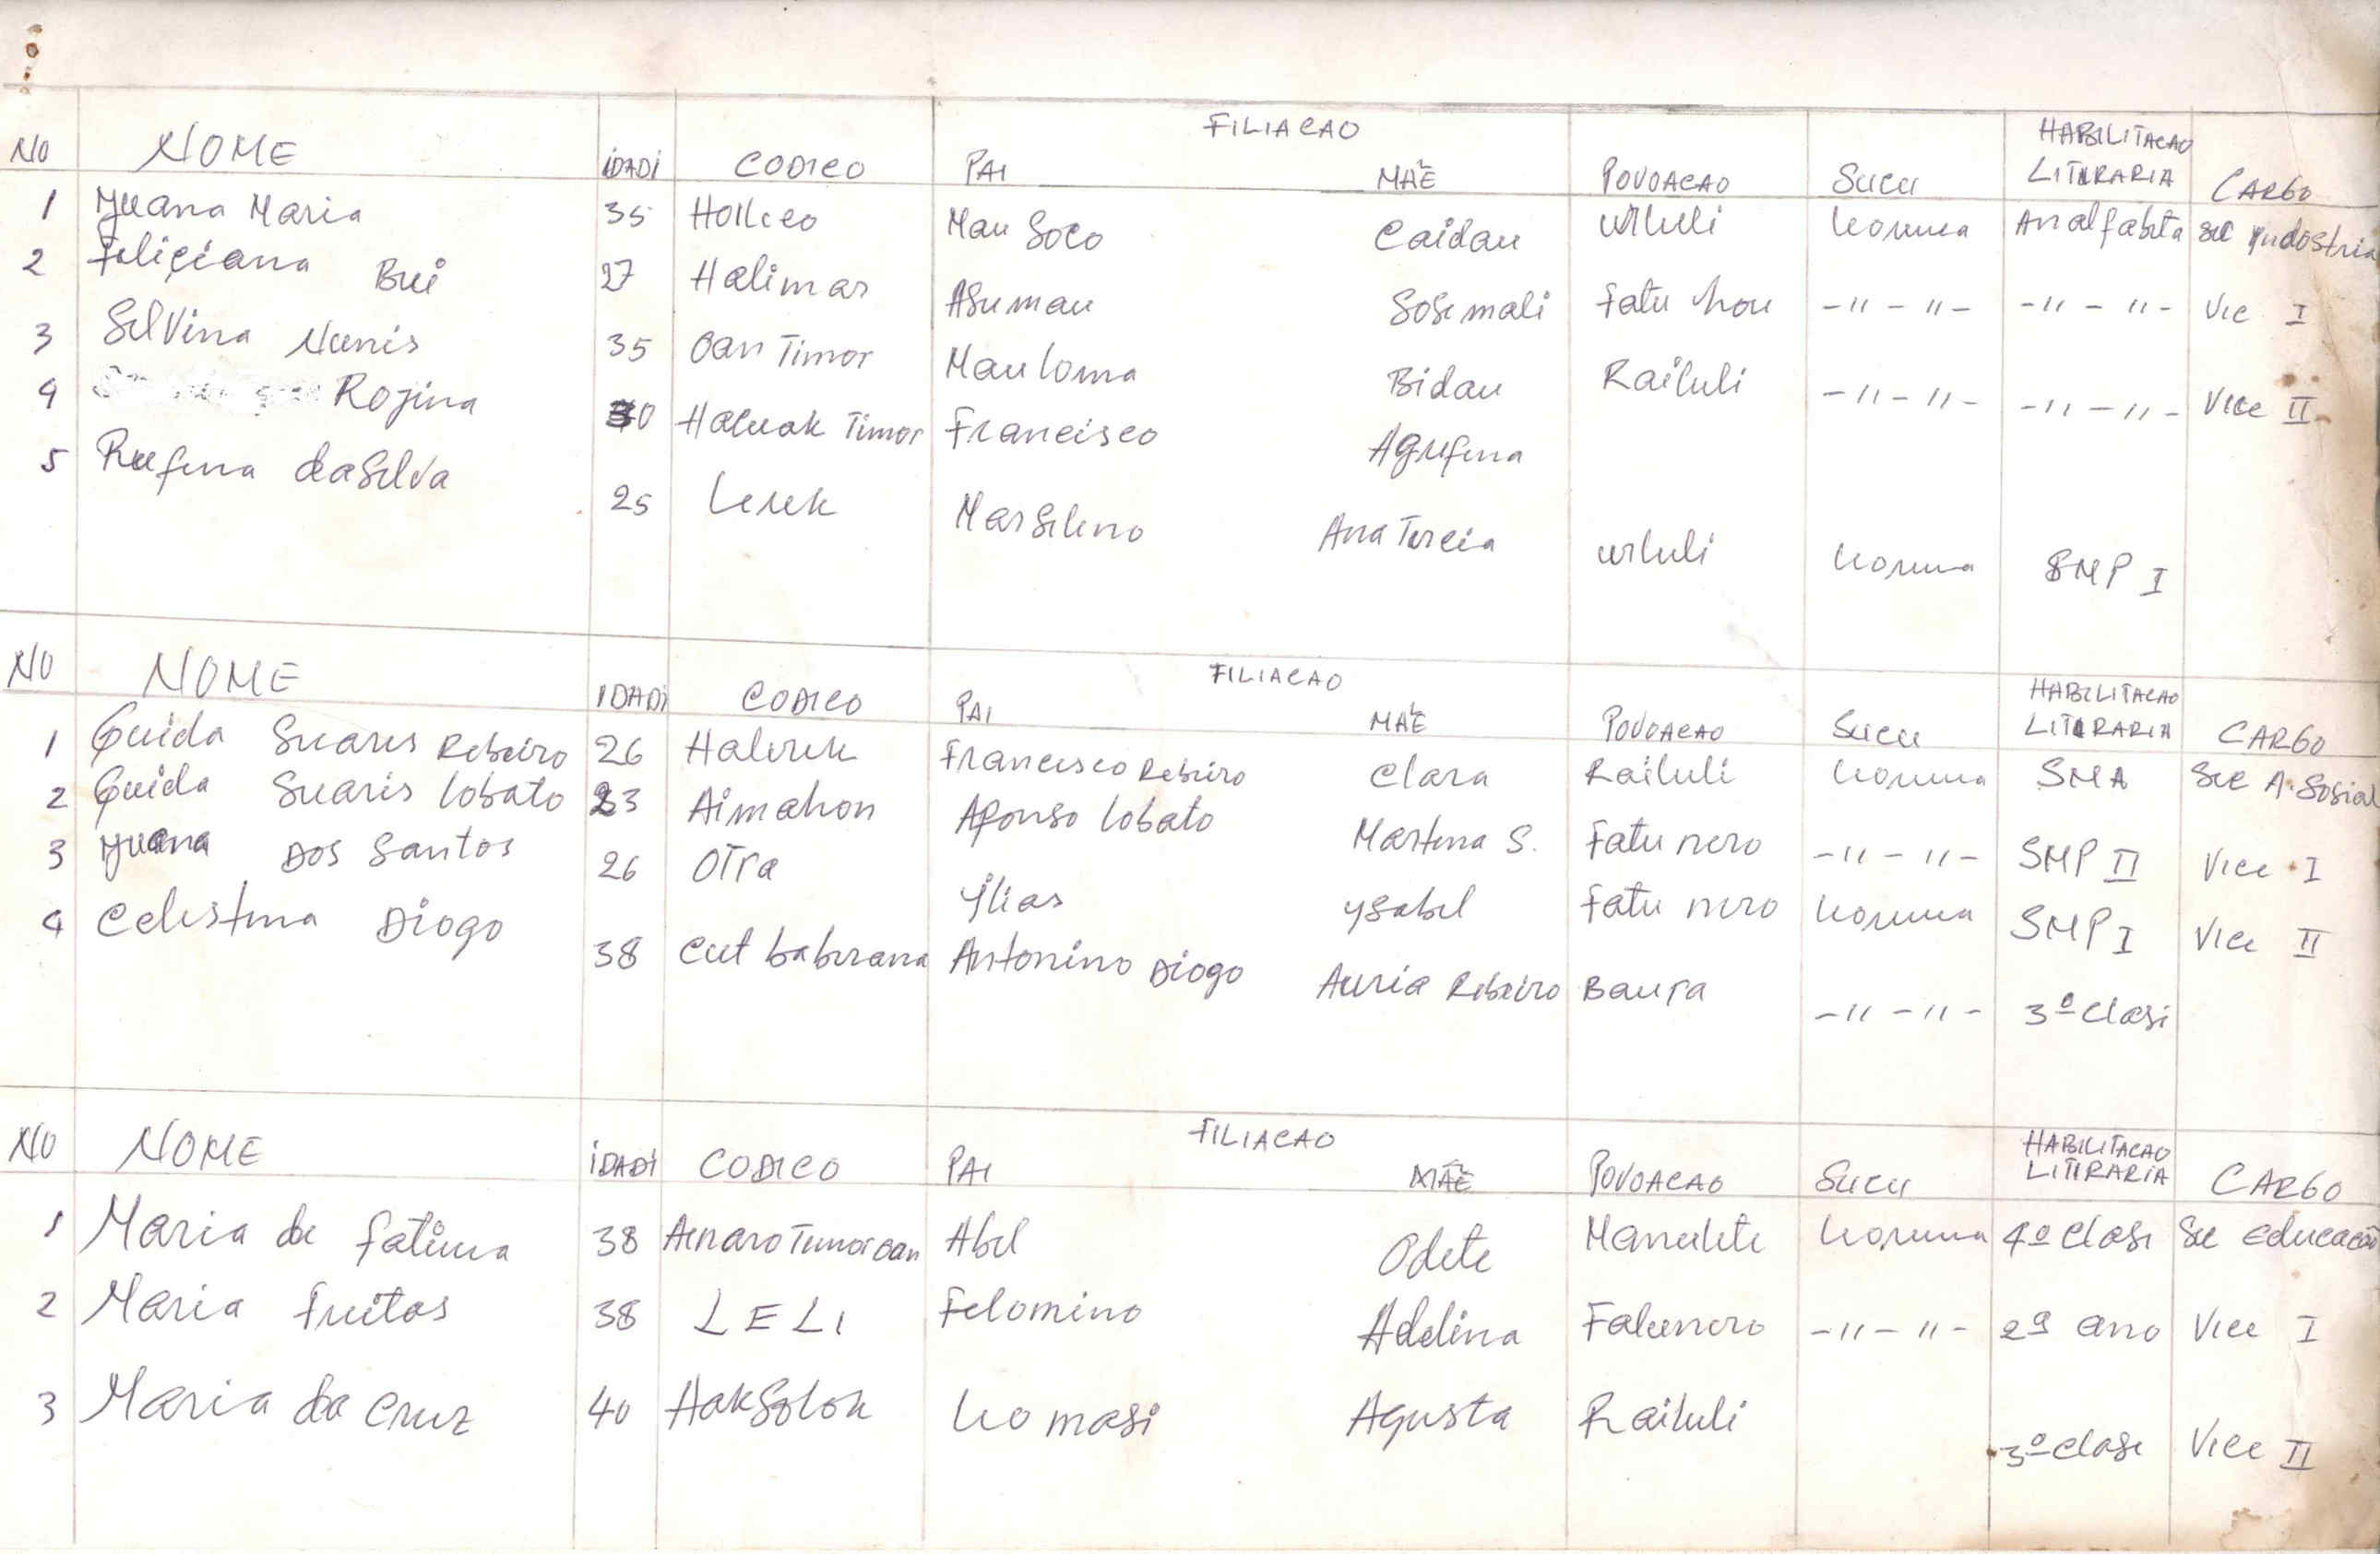 FILIACAO
NO NOME IDADI CODICO PAI MÃE POVOACAO SUCU HABILITACAO LITERARIA CARGO
1 Juana Maria 35 Mau Soco Caidau Wiluli Analfabeta Sec Industria
2 Feliciana Bui 27 Halimar Asumau Sosimali Fatu hou -"-"- -"-"- Vic I
3 Silvina Nunis 35 Oan Timor Mau loma Bidau Railuli -"-"- -"-"- Vice II
4 Rojina 30 Haluak Timor Francisco Agrifina
5 Rufina da Silva 25 Lerek Marsilino Ana Tercia Wiluli SMP I
FILIACAO
NO NOME IDADI CODICO PAI MÃE POVOACAO SUCU HABILITACAO LITERARIA CARGO
1 Guida Suares Ribeiro 26 Halerik Francisco Ribeiro Clara Railuli SMA Sec A. Sosial
2 Guida Suaris lobato 23 Aimahon Afonso lobato Martina S. Fatu nero -"-"- SMP II Vice I
3 Juana DOS Santos 26 Ilias Ysabel Fatu nero SMP I Vice II
4 Celistina Diogo 38 Antonino Diogo Auria Ribeiro -"-"- 3º clasi
FILIACAO
NO NOME IDADI CODICO PAI MÃE POVOACAO SUCU HABILITACAO LITIRARIA CARGO
1 Maria de fatima 38 Abel Odete Manulete 4º clasi Se educacão
2 Maria Freitas 38 LELI Felomino Adelina Fatunero -"-"- 2º ano Vice I
3 Maria da Cruz 40 Haksolok Agusta Railuli 3º clasi Vice II